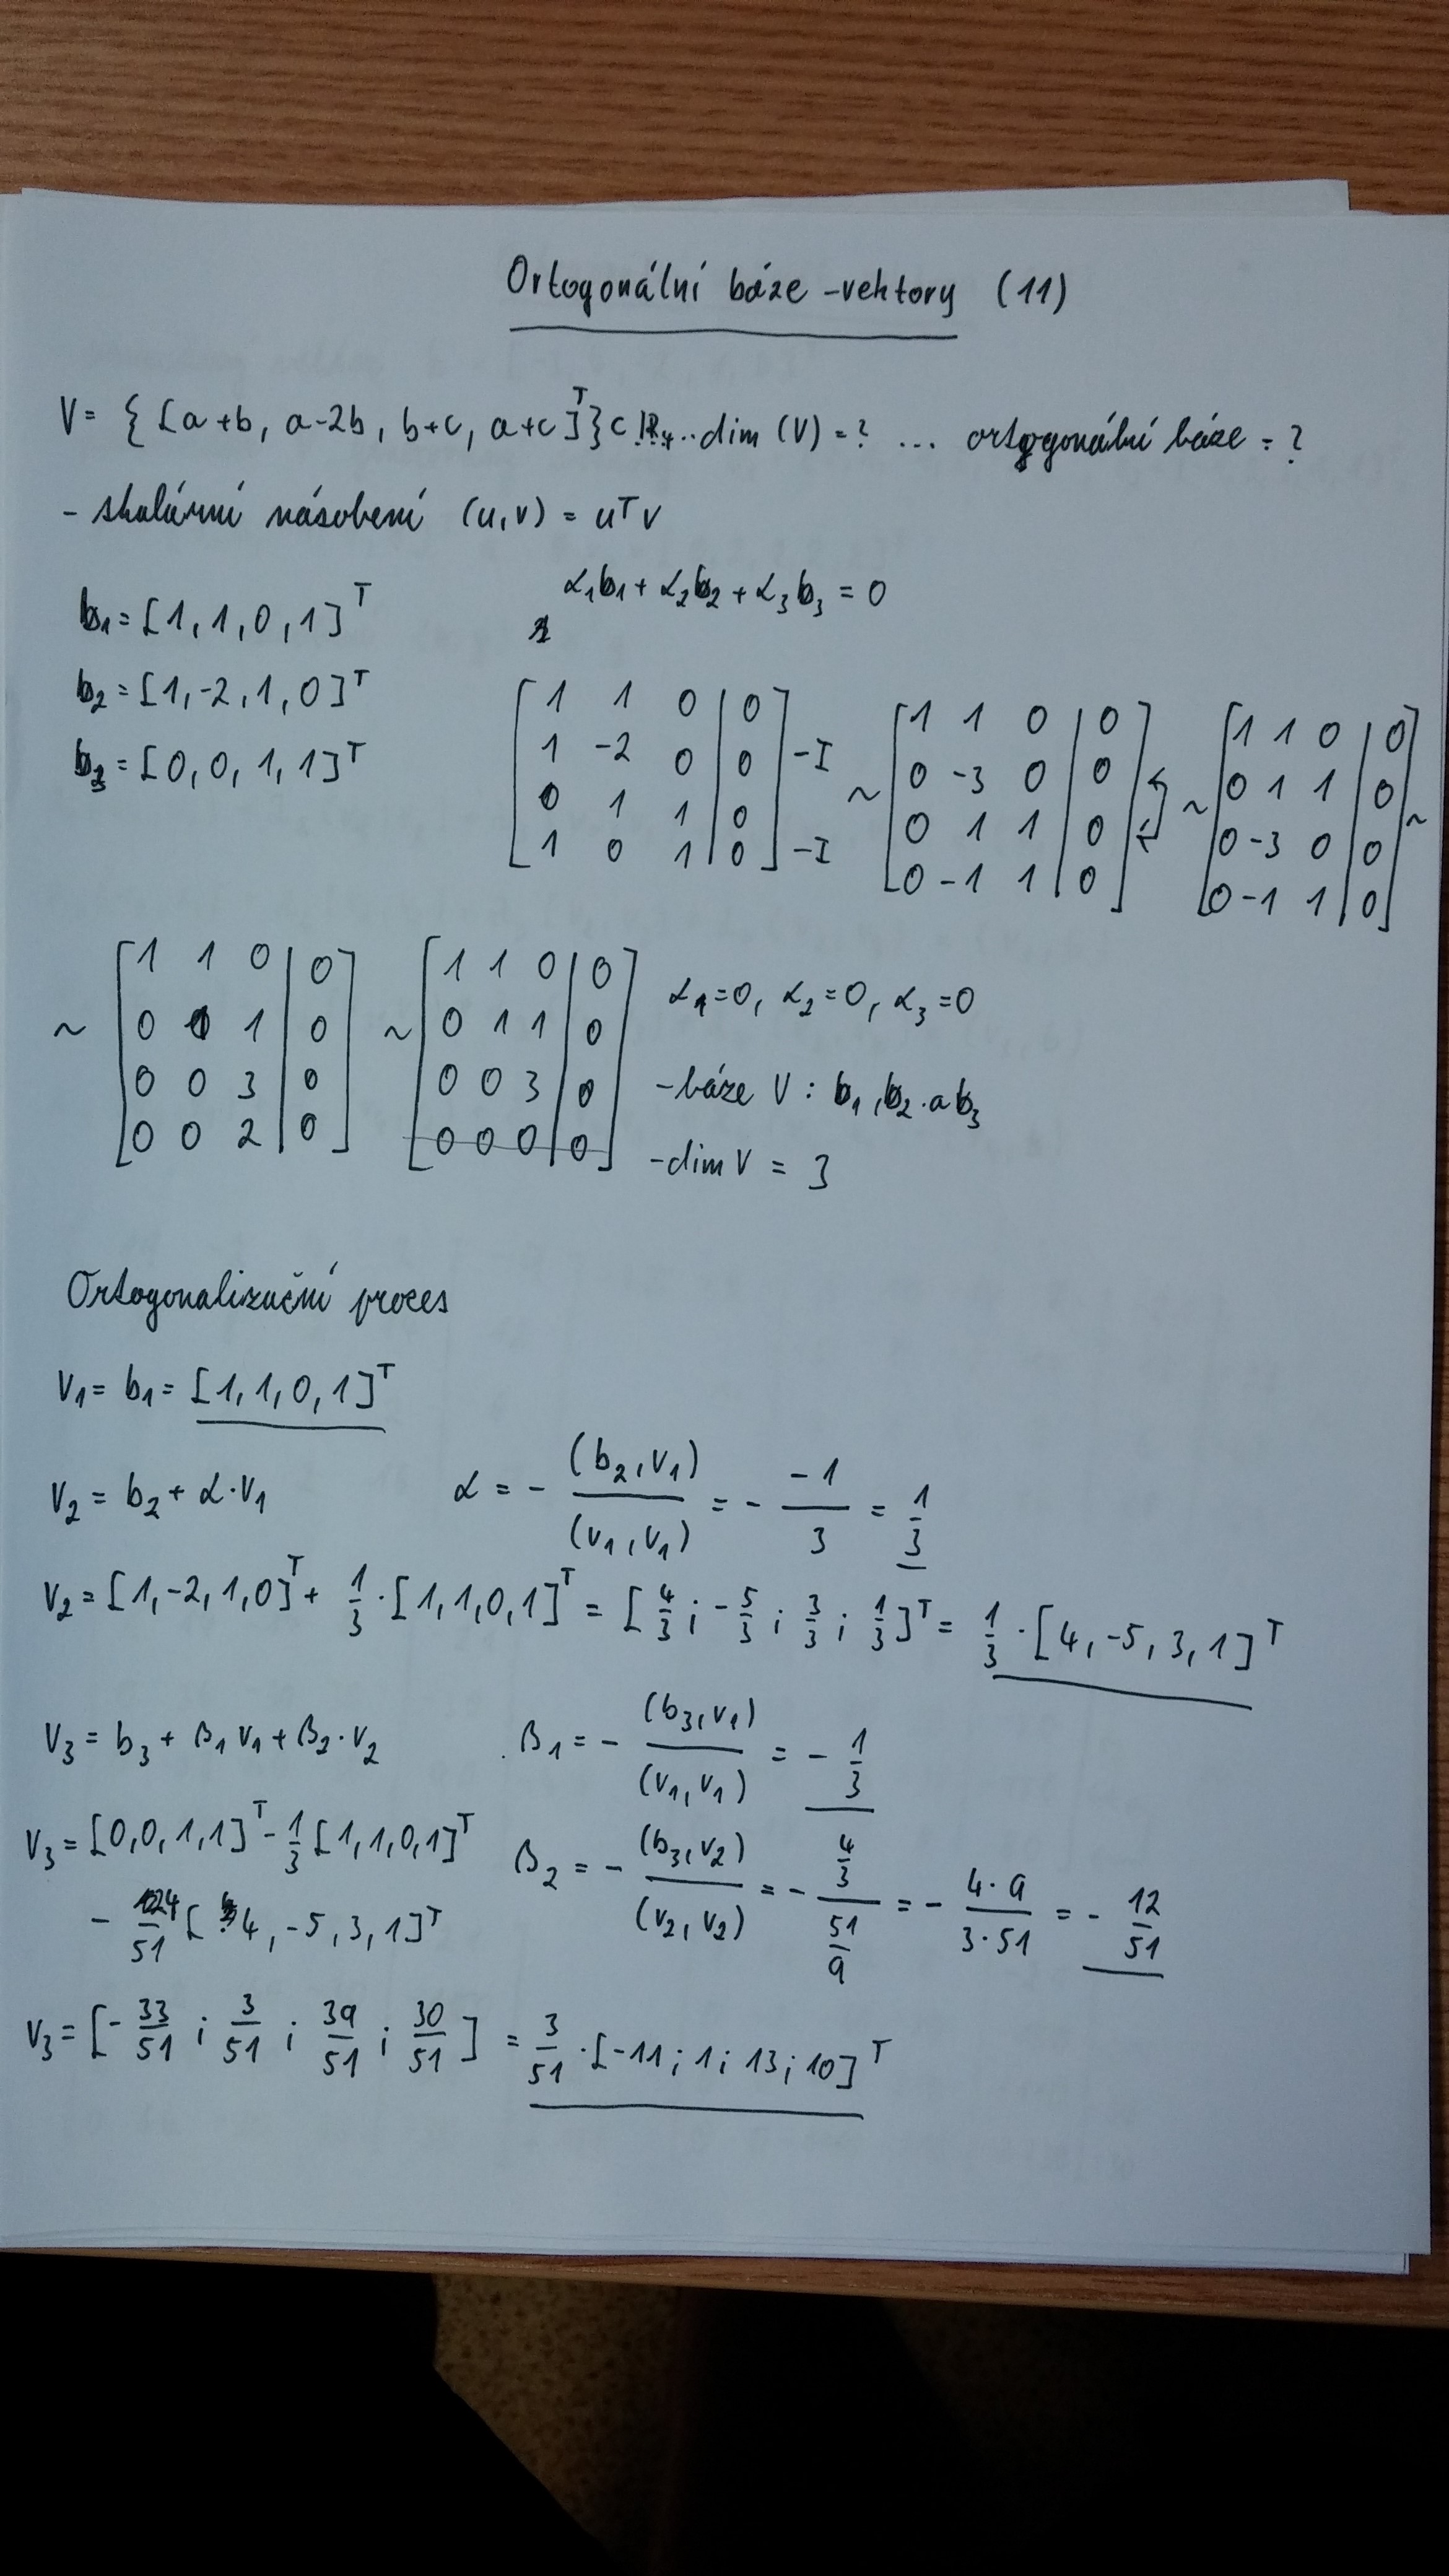 Ortogonální báze -vektory (11)
V= { [a+b, a-2b, b+c, a+c]ᵀ} ⊂ ℝ₄...dim (V) = ? ... ortogonální báze = ?
- skalární násobení (u,v) = uᵀv
b₁= [1,1,0,1]ᵀ
b₂ = [1,-2,1,0]ᵀ
b₃ = [0,0,1,1]ᵀ
α₁b₁+ α₂b₂ + α₃b₃ = 0
[1 1 0 | 0] ~ [1 1 0 | 0] ~ [1 1 0 | 0] ~
[1 -2 0 | 0] -I [0 -3 0 | 0] [0 1 1 | 0]
[0 1 1 | 0] [0 1 1 | 0] [0 -3 0 | 0]
[1 0 1 | 0] -I [0 -1 1 | 0] [0 -1 1 | 0]
~ [1 1 0 | 0] ~ [1 1 0 | 0]
[0 1 1 | 0] [0 1 1 | 0]
[0 0 3 | 0] [0 0 3 | 0]
[0 0 2 | 0] [0 0 0 | 0]
α₁=0, α₂=0, α₃=0
-báze V : b₁, b₂ a b₃
-dim V = 3
Ortogonalizační proces
V₁= b₁= [1,1,0,1]ᵀ
V₂ = b₂ + α·V₁ α = - (b₂,V₁)/(V₁,V₁) = - -1/3 = 1/3
V₂= [1,-2,1,0]ᵀ+ 1/3 · [1,1,0,1]ᵀ = [4/3 ; -5/3 ; 3/3 ; 1/3]ᵀ = 1/3 · [4,-5,3,1]ᵀ
V₃ = b₃ + β₁V₁ + β₂·V₂ β₁ = - (b₃,V₁)/(V₁,V₁) = - 1/3
V₃ = [0,0,1,1]ᵀ- 1/3 [1,1,0,1]ᵀ
- 4/51 [4,-5,3,1]ᵀ
β₂ = - (b₃,V₂)/(V₂,V₂) = - (4/3)/(51/9) = - 4·9/3·51 = - 12/51
V₃= [-33/51 ; 3/51 ; 39/51 ; 30/51] = 3/51 · [-11; 1; 13; 10]ᵀ